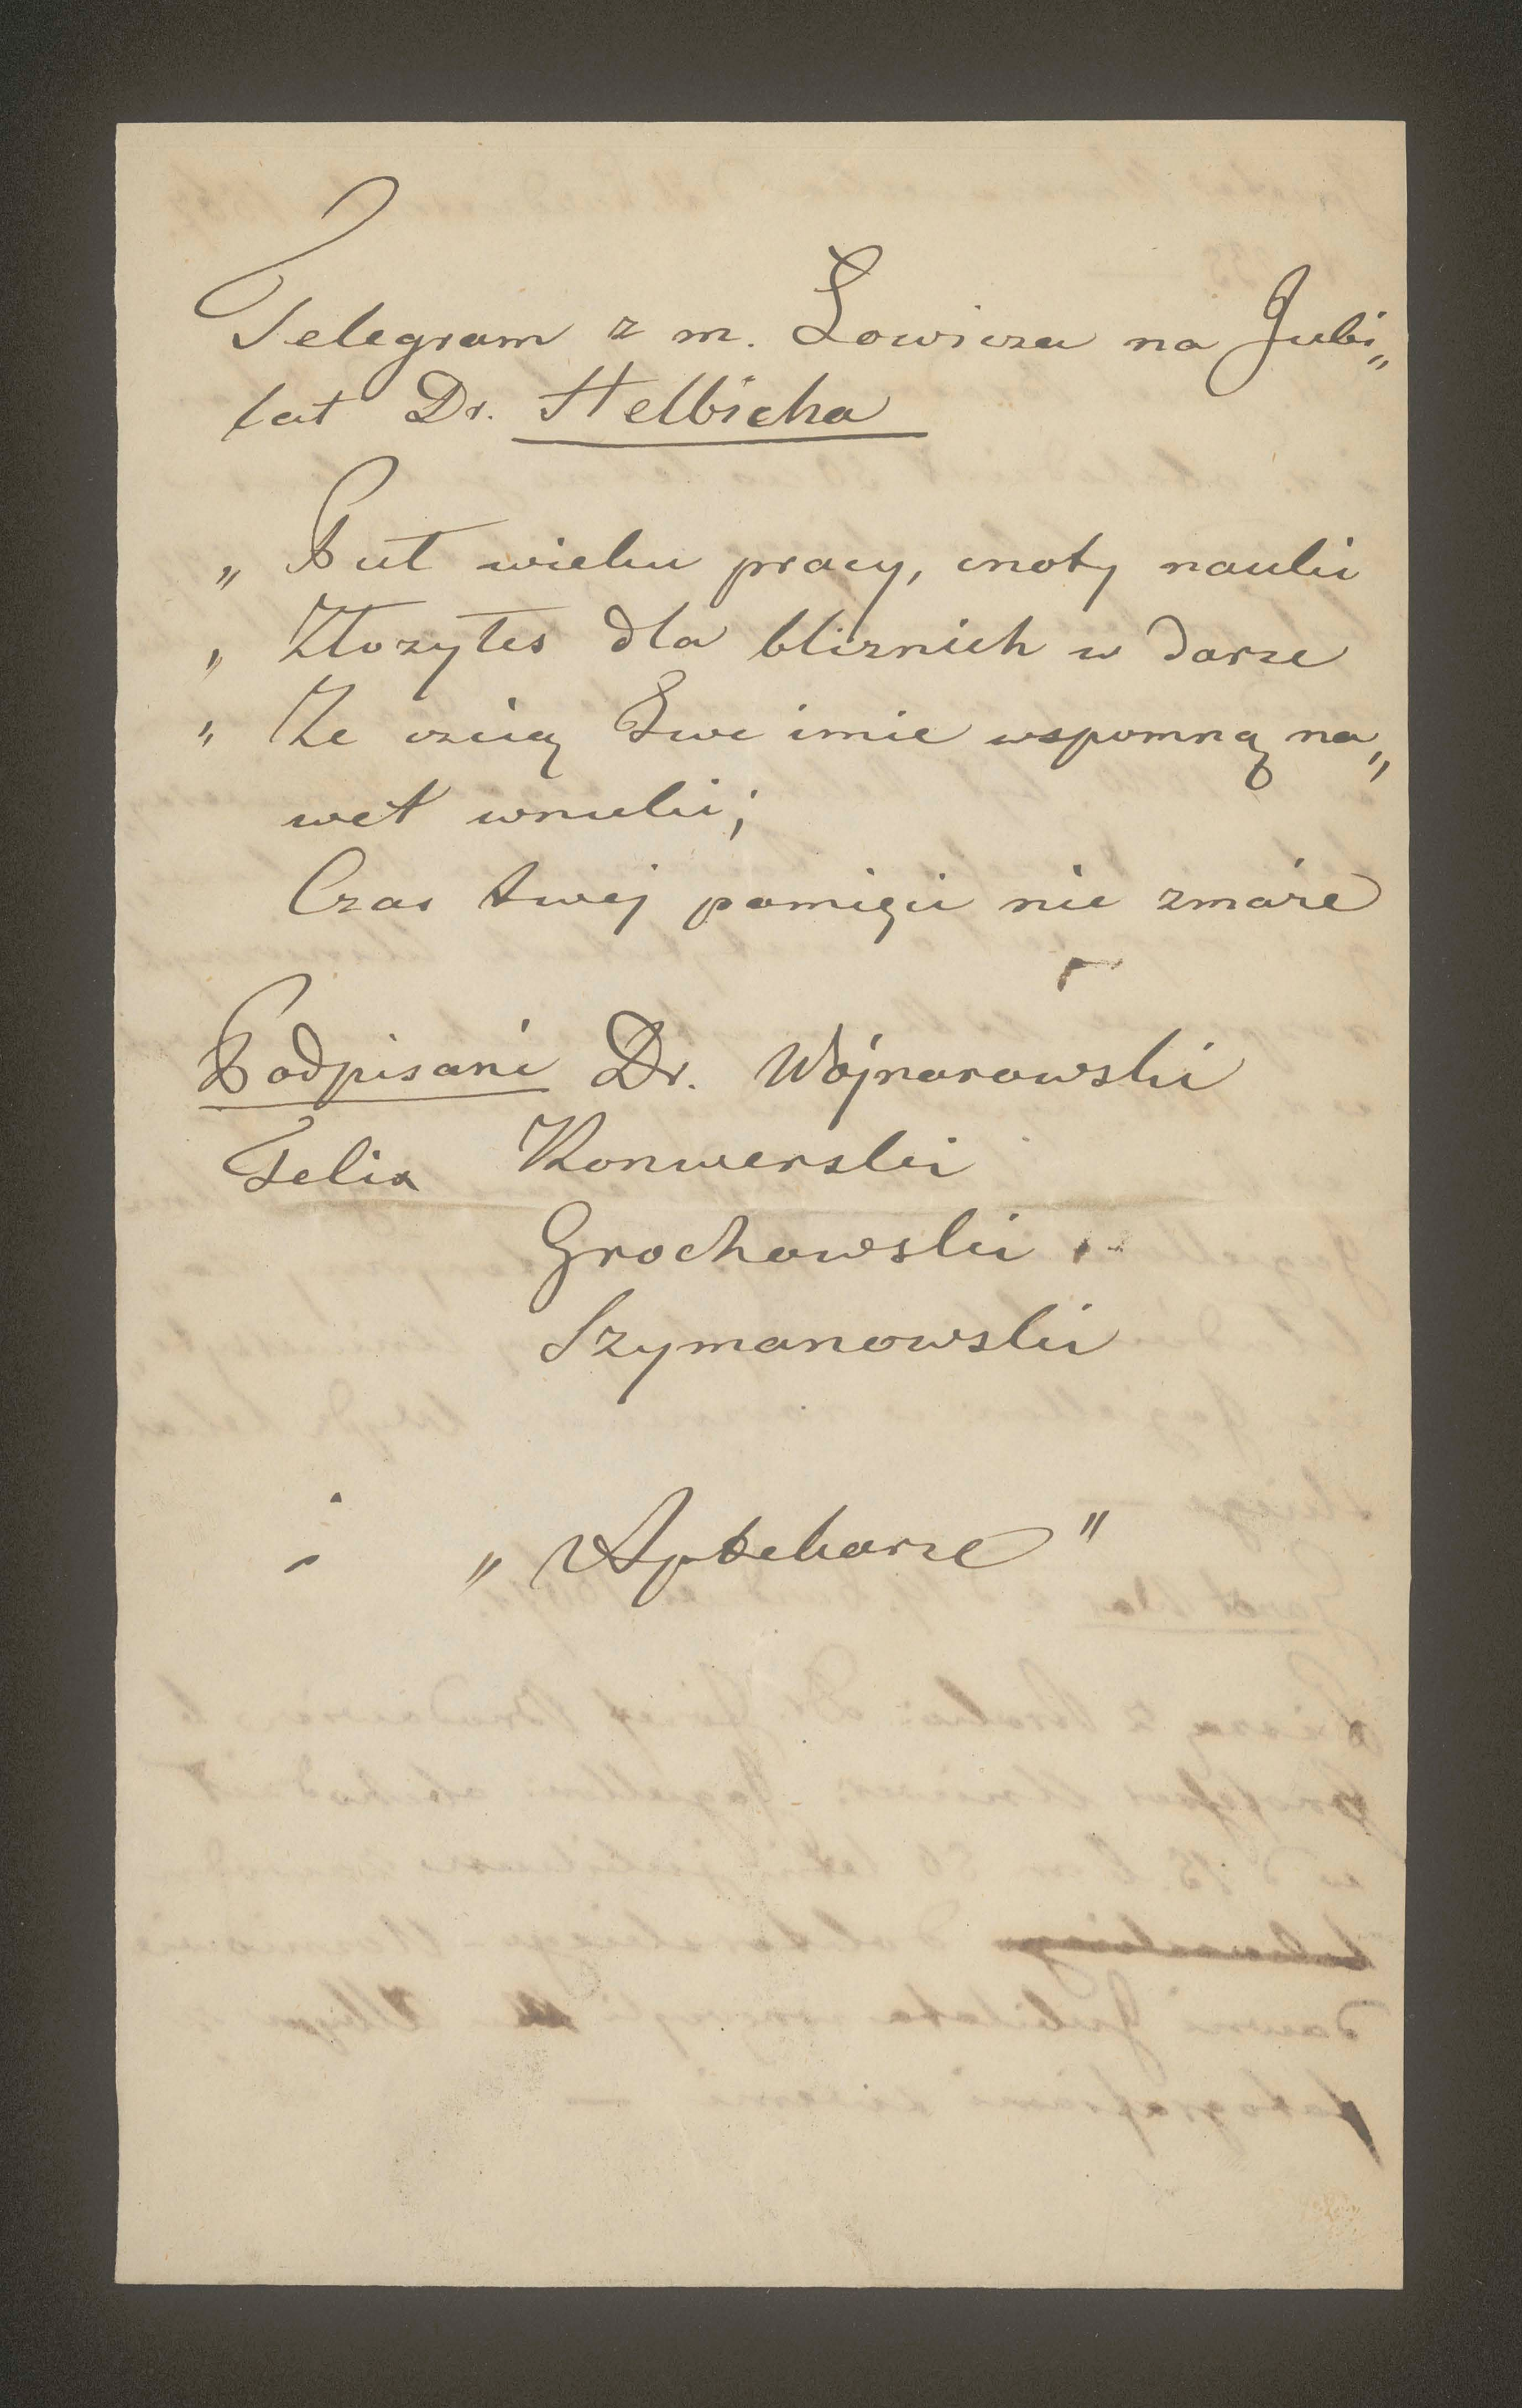 Telegram z m. Łowicza na Jubi„
lat Dr. Helbicha
„ Puł wieku pracy, cnoty nauki
„ Złozyłes dla bliznich w darze
„ Ze czcią Twe imie wspomną na„
wet wnuki;
Czas twej pamięci nie zmaże
Podpisani Dr. Wójnarowski
Felix Konwerski
Grochowski
Szymanowski
i „Aptekarze"